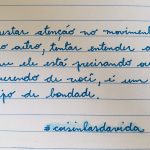 restar atenção no movimento
o outro, tentar entender o
ue ele está precisando ou
uerendo de você, é um
ipo de bondade.
#coisinhasdavida